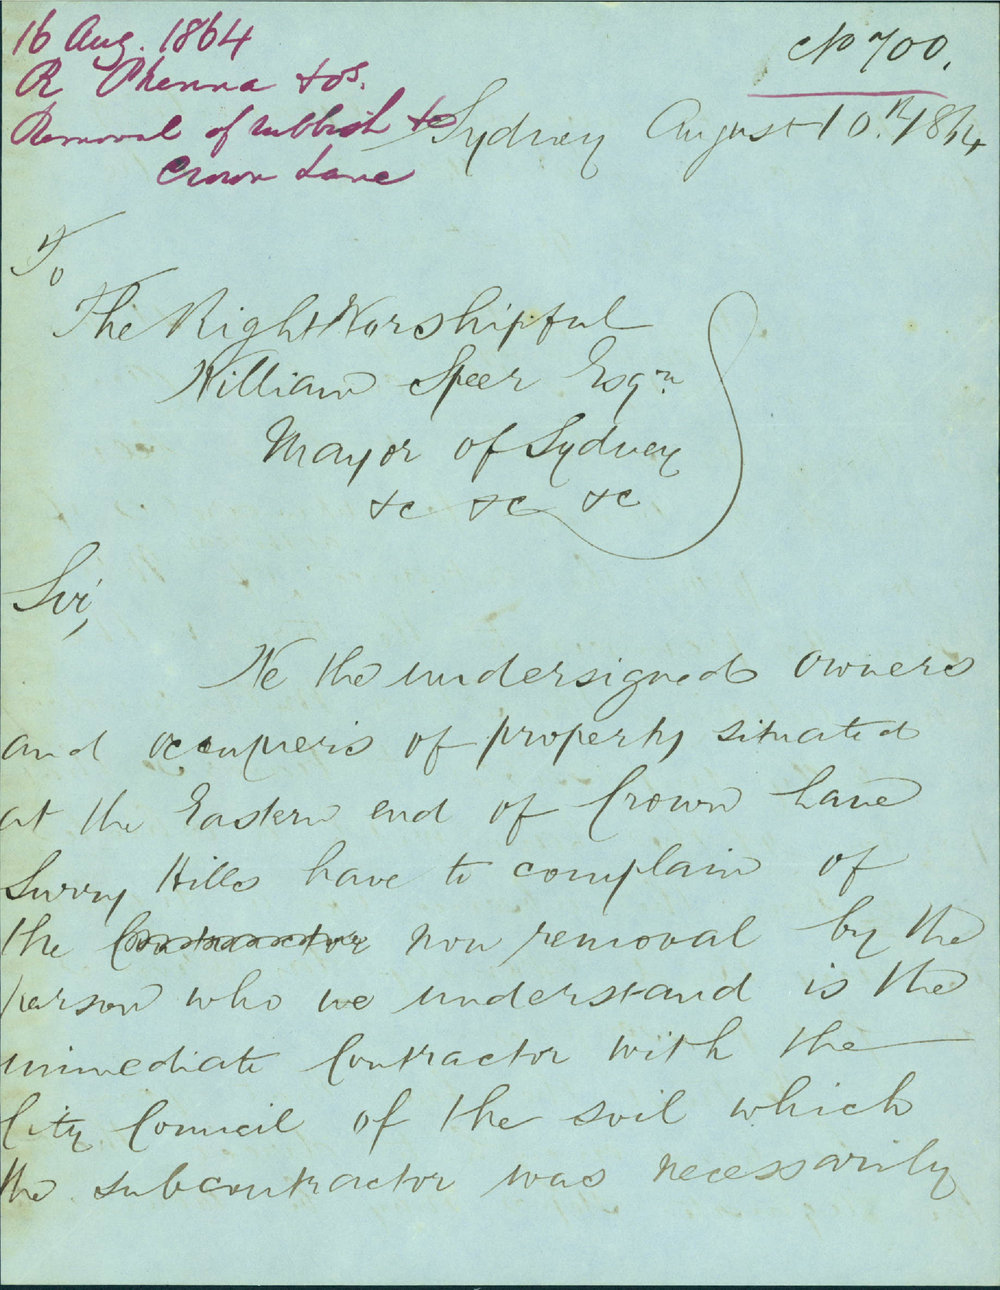 16 Aug. 1864
R Phenna & os.
Removal of rubbish &c
Crown Lane
No 700.
Sydney August 10.th 1864
To
The Right Worshipful
William Speer Esqr.
Mayor of Sydney
&c &c &c
Sir,
We the undersigned owners
and occupiers of property situated
at the Eastern end of Crown Lane
Surry Hills have to complain of
the Contractor non removal by the
person who we understand is the
immediate Contractor with the
City Council of the soil which
the subcontractor was necessarily